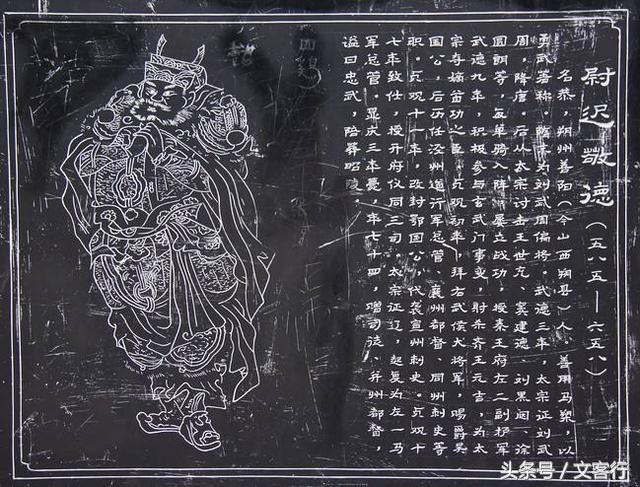 尉迟敬德（五八五——六五八）
名恭，朔州善阳（今山西朔县）人。善用马槊，以
勇武著称。隋末为刘武周偏将。武德三年，太宗征刘武
周，降唐。后从太宗讨击王世充、窦建德、刘黑闼、徐
圆朗等，每单骑入阵，屡立战功，授秦王府左二副护军
武德九年，积极参与玄武门事变，射杀齐王元吉，为太
宗夺嫡首功之臣。贞观初年，拜右武侯大将军，赐爵吴
国公，后历任泾州道行军总管、襄州都督、同州刺史等
职。贞观十一年，改封鄂国公，代袭宣州刺史。贞观十
七年致仕，授开府仪同三司。太宗征辽，起复为左一马
军总管。显庆三年薨，年七十四，赠司徒、并州都督，
谥曰忠武，陪葬昭陵。
头条号／文客行